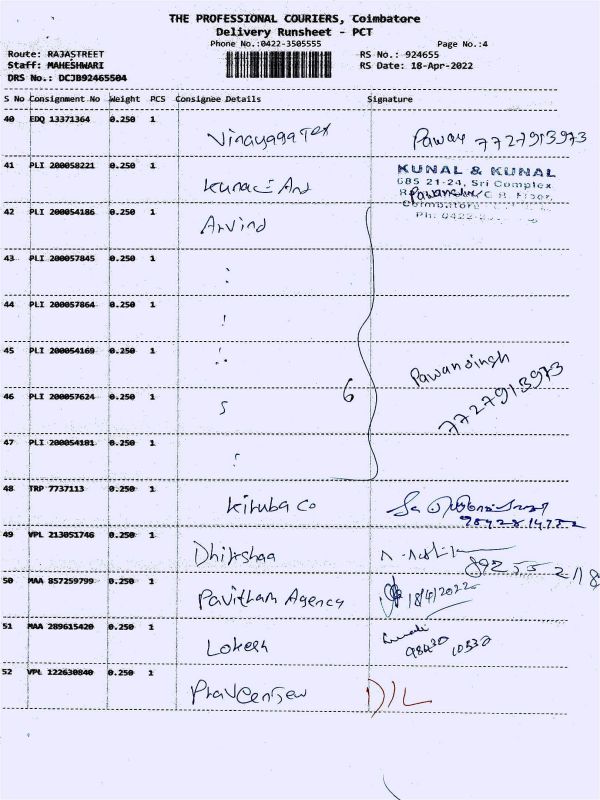 THE PROFESSIONAL COURIERS, Coimbatore
Delivery Runsheet - PCT
Phone No.:0422-3505555
Page No.:4
Route: RAJASTREET
RS No.: 924655
Staff: MAHESHWARI
RS Date: 18-Apr-2022
DRS No.: DCJB92465504
S No Consignment No Weight PCS Consignee Details Signature
40 EDQ 13371364 0.250 1 Vinayaga Tex 7727913973
41 PLI 200058221 0.250 1 Kunal And
KUNAL & KUNAL
685 21-24, Sri Complex
Coimbatore
Ph: 0422-
42 PLI 200054186 0.250 1 Arvind
43 PLI 200057845 0.250 1
44 PLI 200057864 0.250 1
45 PLI 200054169 0.250 1 Pawansingh
7727913973
46 PLI 200057624 0.250 1 6
47 PLI 200054181 0.250 1
48 TRP 7737113 0.250 1 Kiruba Co
49 VPL 213051746 0.250 1
50 MAA 857259799 0.250 1 Pavitham Agency 18/4/2022
51 MAA 289615420 0.250 1 Lokesh
98430 10530
52 VPL 122630840 0.250 1 D/L